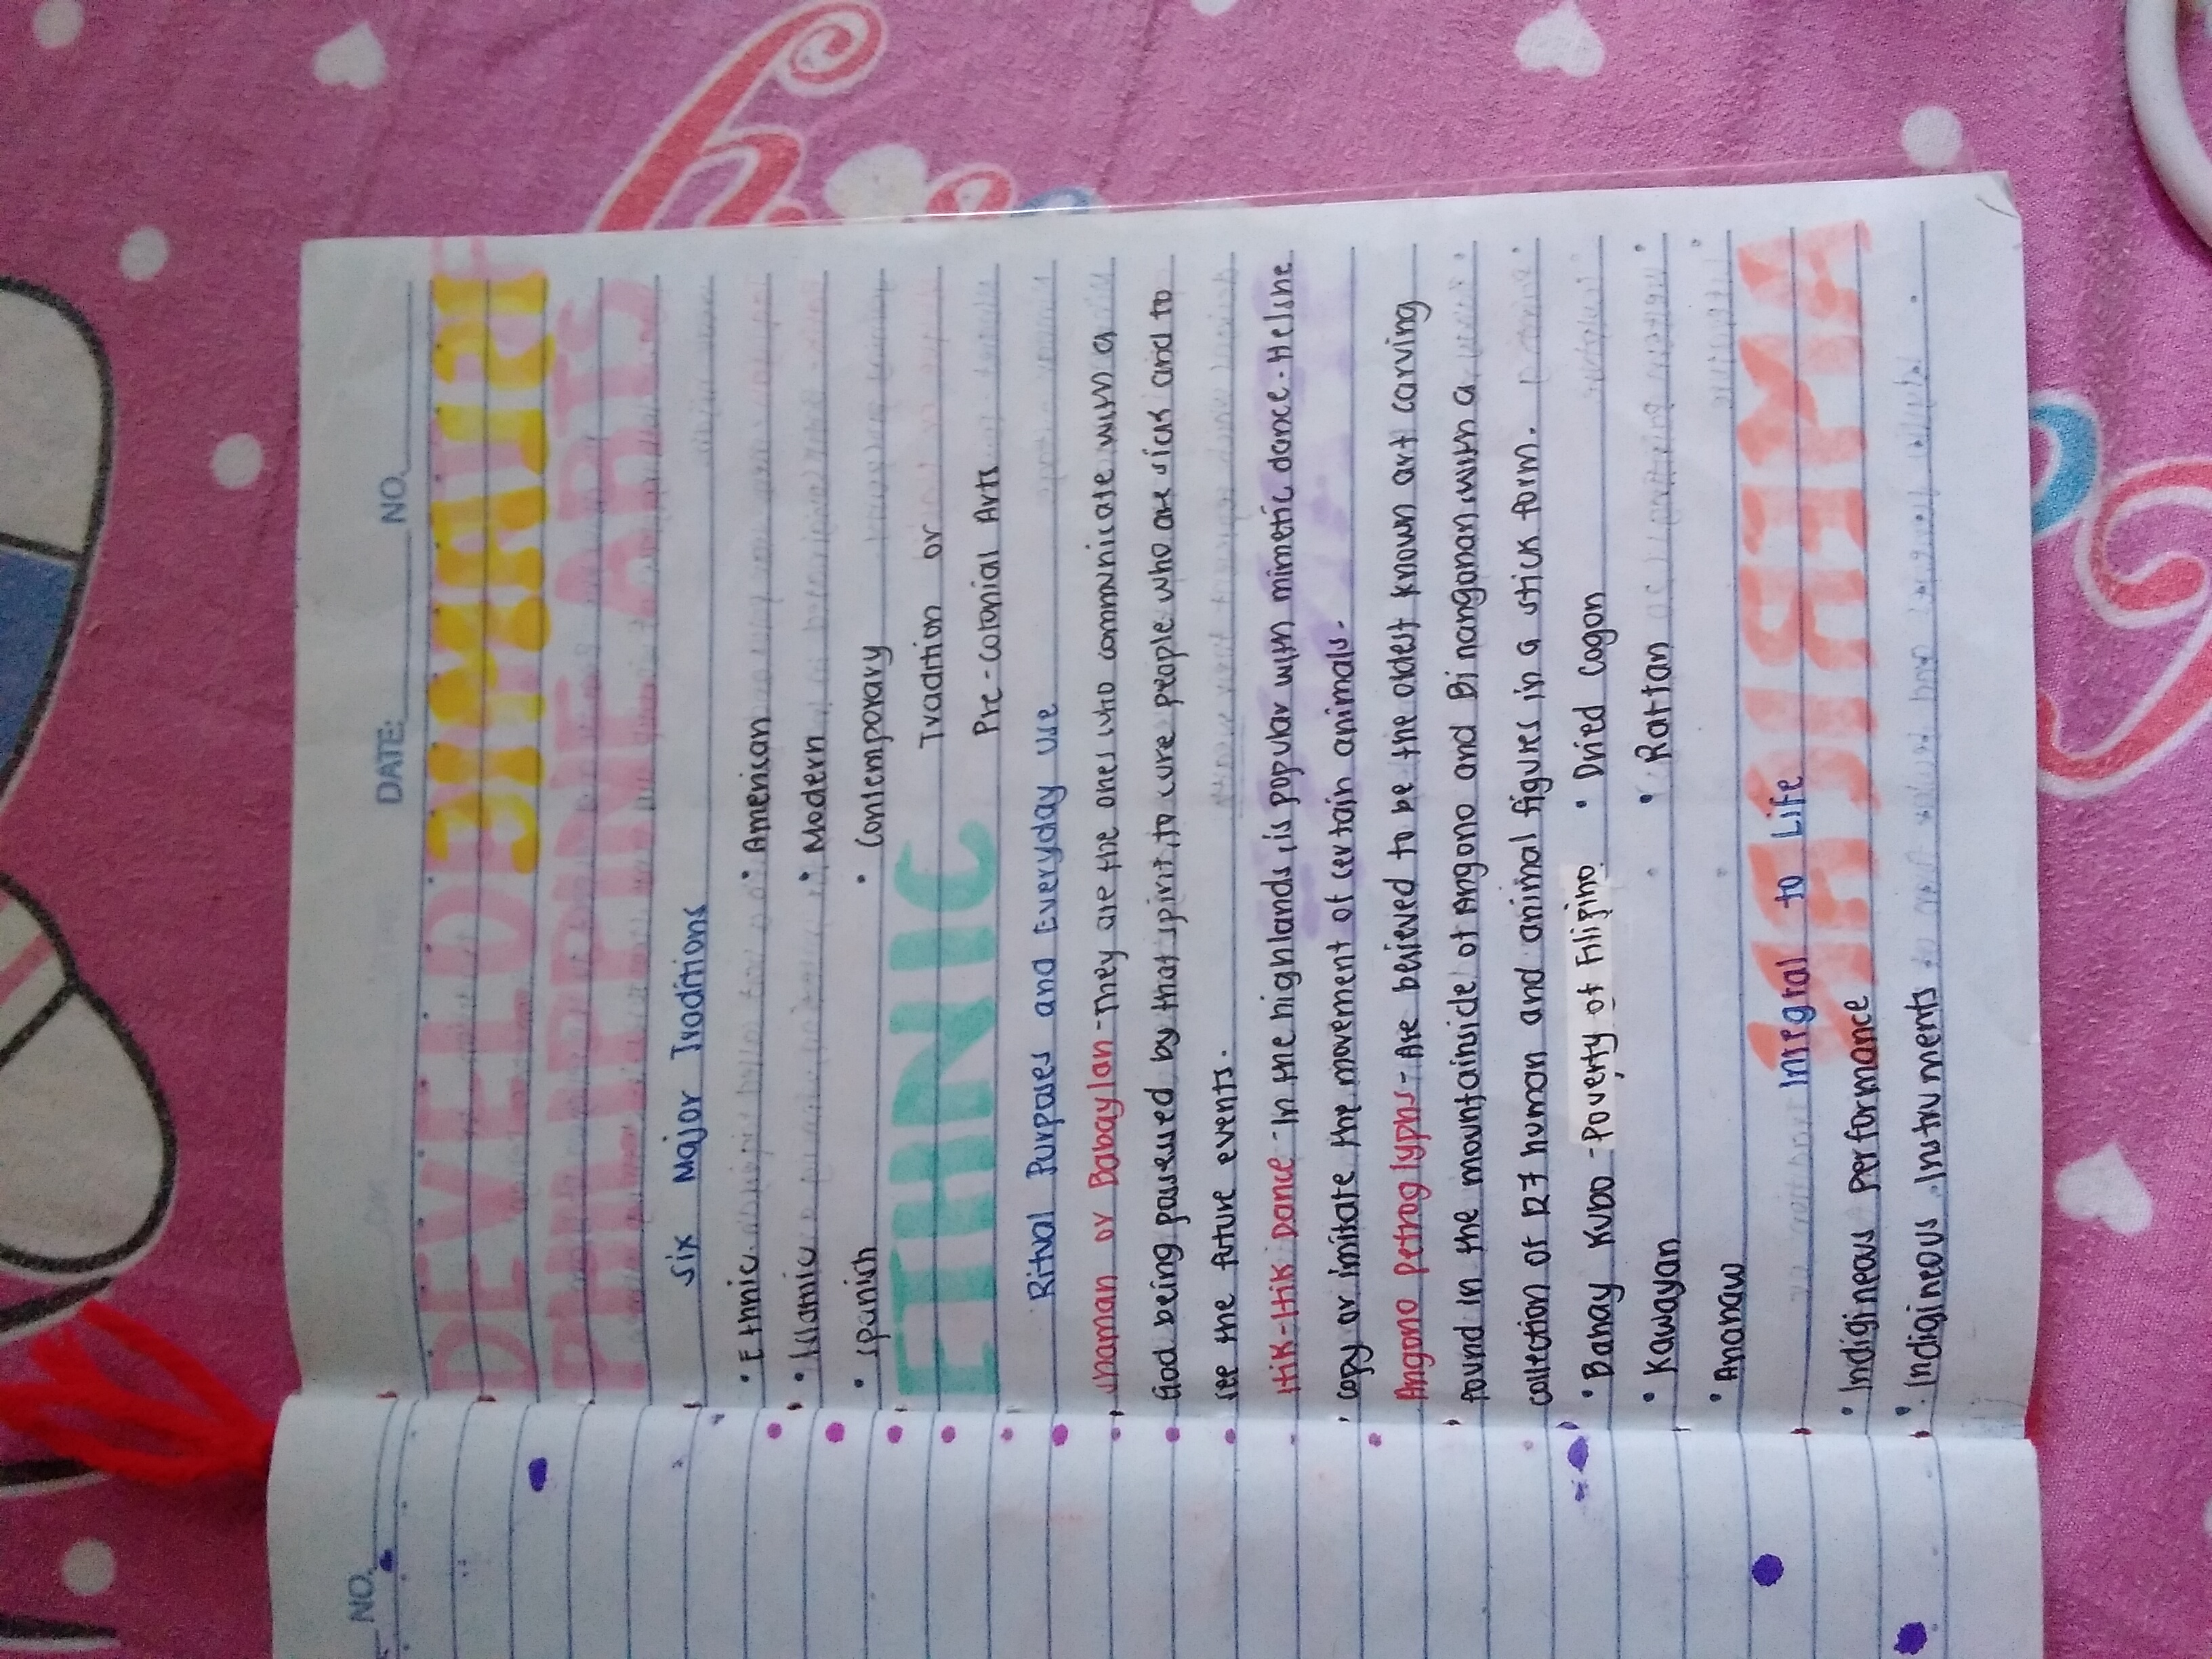 NO.
DATE: NO.
PHILIPPINE ARTS
Six Major Traditions
• Ethnic • American
• Islamic • Modern
• Spanish • Contemporary
ETHNIC Tradition or
Pre-colonial Arts
Ritual Purposes and Everyday Use
Shaman or Babaylan - They are the ones who communicate with a
God being possessed by that spirit, to cure people who are sick and to
see the future events.
Hik-Hik Dance - In the highlands, is popular with mimetic dance. He/she
copy or imitate the movement of certain animals.
Angono Petroglyphs - Are believed to be the oldest known art carving
found in the mountainside of Angono and Binangonan, with a
collection of 127 human and animal figures in a stick form.
• Bahay Kubo - Poverty of Filipino • Dried Cogon
• Kawayan • Rattan
• Anahaw
Integral to Life
• Indigineous performance
• Indigineous Instruments